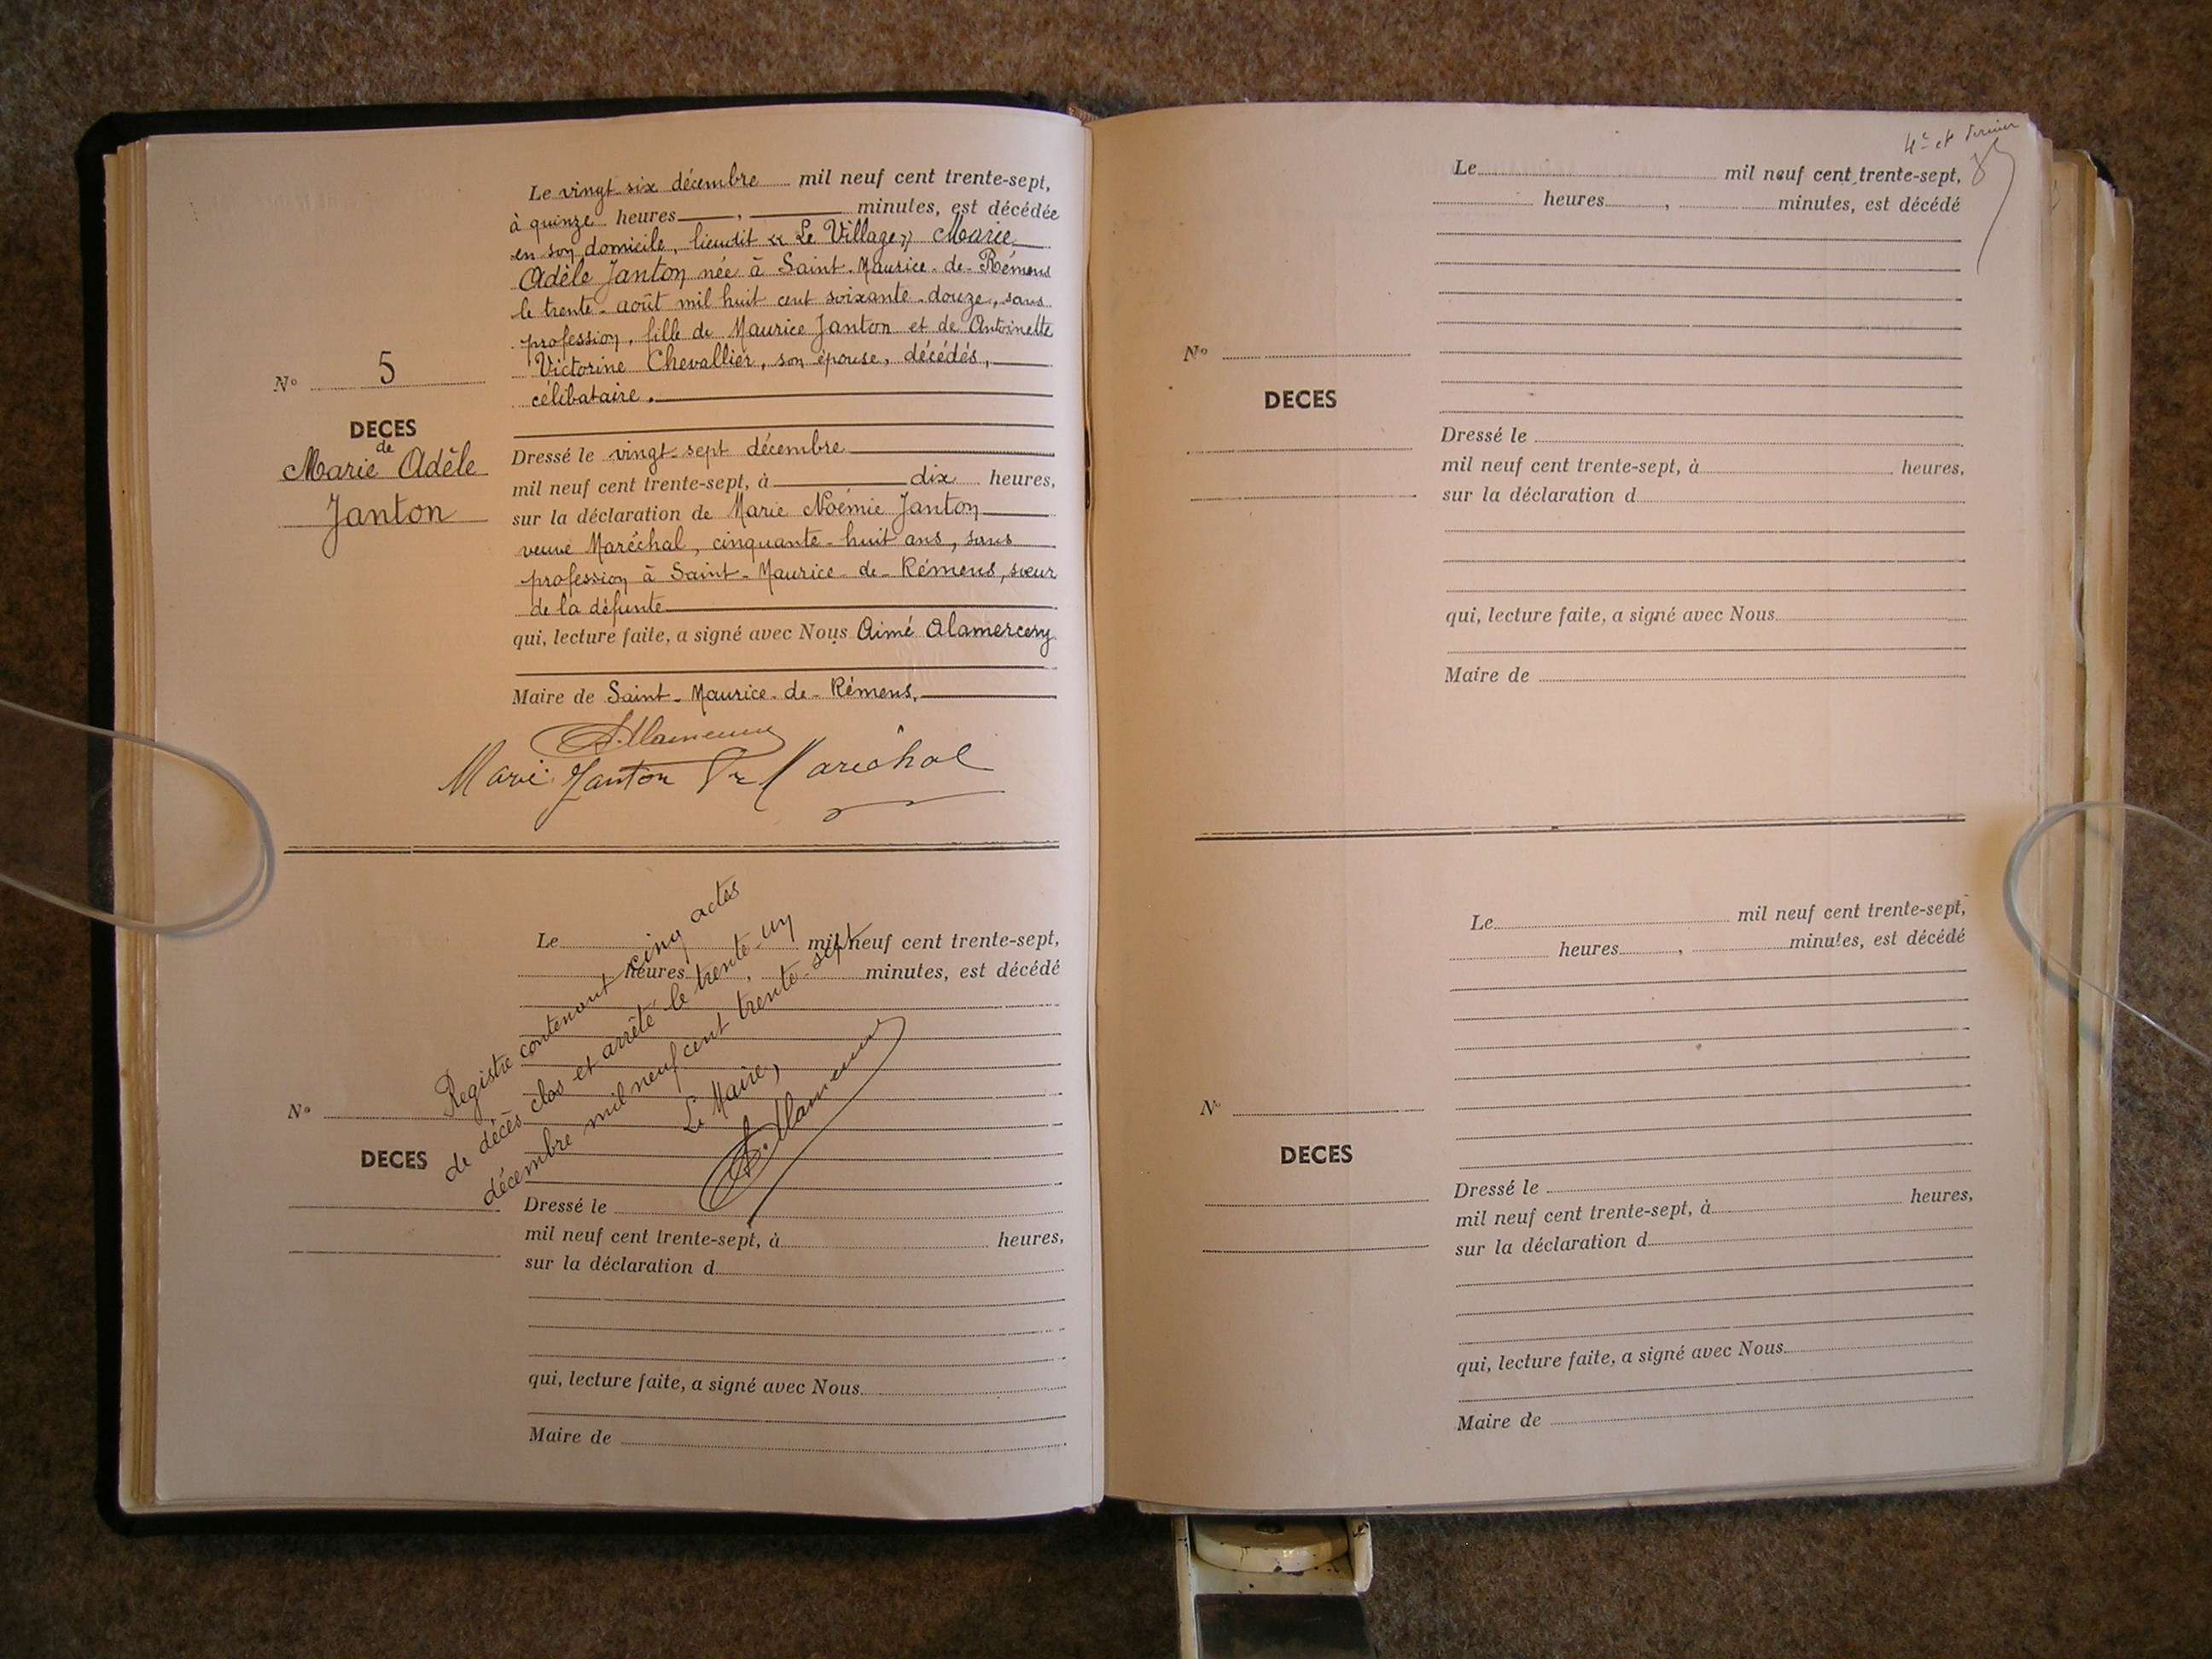 Le vingt-six décembre mil neuf cent trente-sept,
à quinze heures , minutes, est décédée
en son domicile, lieudit « Le Village » Marie
Adèle Janton née à Saint-Maurice-de-Rémens
le trente-août mil huit cent soixante-douze, sans
profession, fille de Maurice Janton et de Antoinette
Victorine Chevallier, son épouse, décédés,
célibataire.
N° 5
DECES
de
Marie Adèle
Janton
Dressé le vingt-sept décembre
mil neuf cent trente-sept, à dix heures,
sur la déclaration de Marie Noémie Janton
veuve Maréchal, cinquante-huit ans, sans
profession à Saint-Maurice-de-Rémens, sœur
de la défunte
qui, lecture faite, a signé avec Nous Aimé Alamercery
Maire de Saint-Maurice-de-Rémens,
Marie Janton Vve Maréchal
Le mil neuf cent trente-sept,
heures , minutes, est décédé
N°
DECES
Registre contenant cinq actes
de décès clos et arrêté le trente-un
décembre mil neuf cent trente-sept
Le Maire,
Dressé le
mil neuf cent trente-sept, à heures,
sur la déclaration d
qui, lecture faite, a signé avec Nous
Maire de
4e et dernier
Le mil neuf cent trente-sept,
heures , minutes, est décédé
N°
DECES
Dressé le
mil neuf cent trente-sept, à heures,
sur la déclaration d
qui, lecture faite, a signé avec Nous
Maire de
Le mil neuf cent trente-sept,
heures , minutes, est décédé
N°
DECES
Dressé le
mil neuf cent trente-sept, à heures,
sur la déclaration d
qui, lecture faite, a signé avec Nous
Maire de